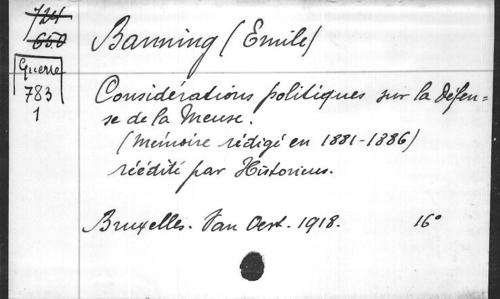 724
650
Guerre
783
1
Banning (Emile)
Considérations politiques sur la défen=
se de la Meuse.
(Mémoire rédigé en 1881-1886)
réédité par Historicus.
Bruxelles. Van Oest. 1918. 16°